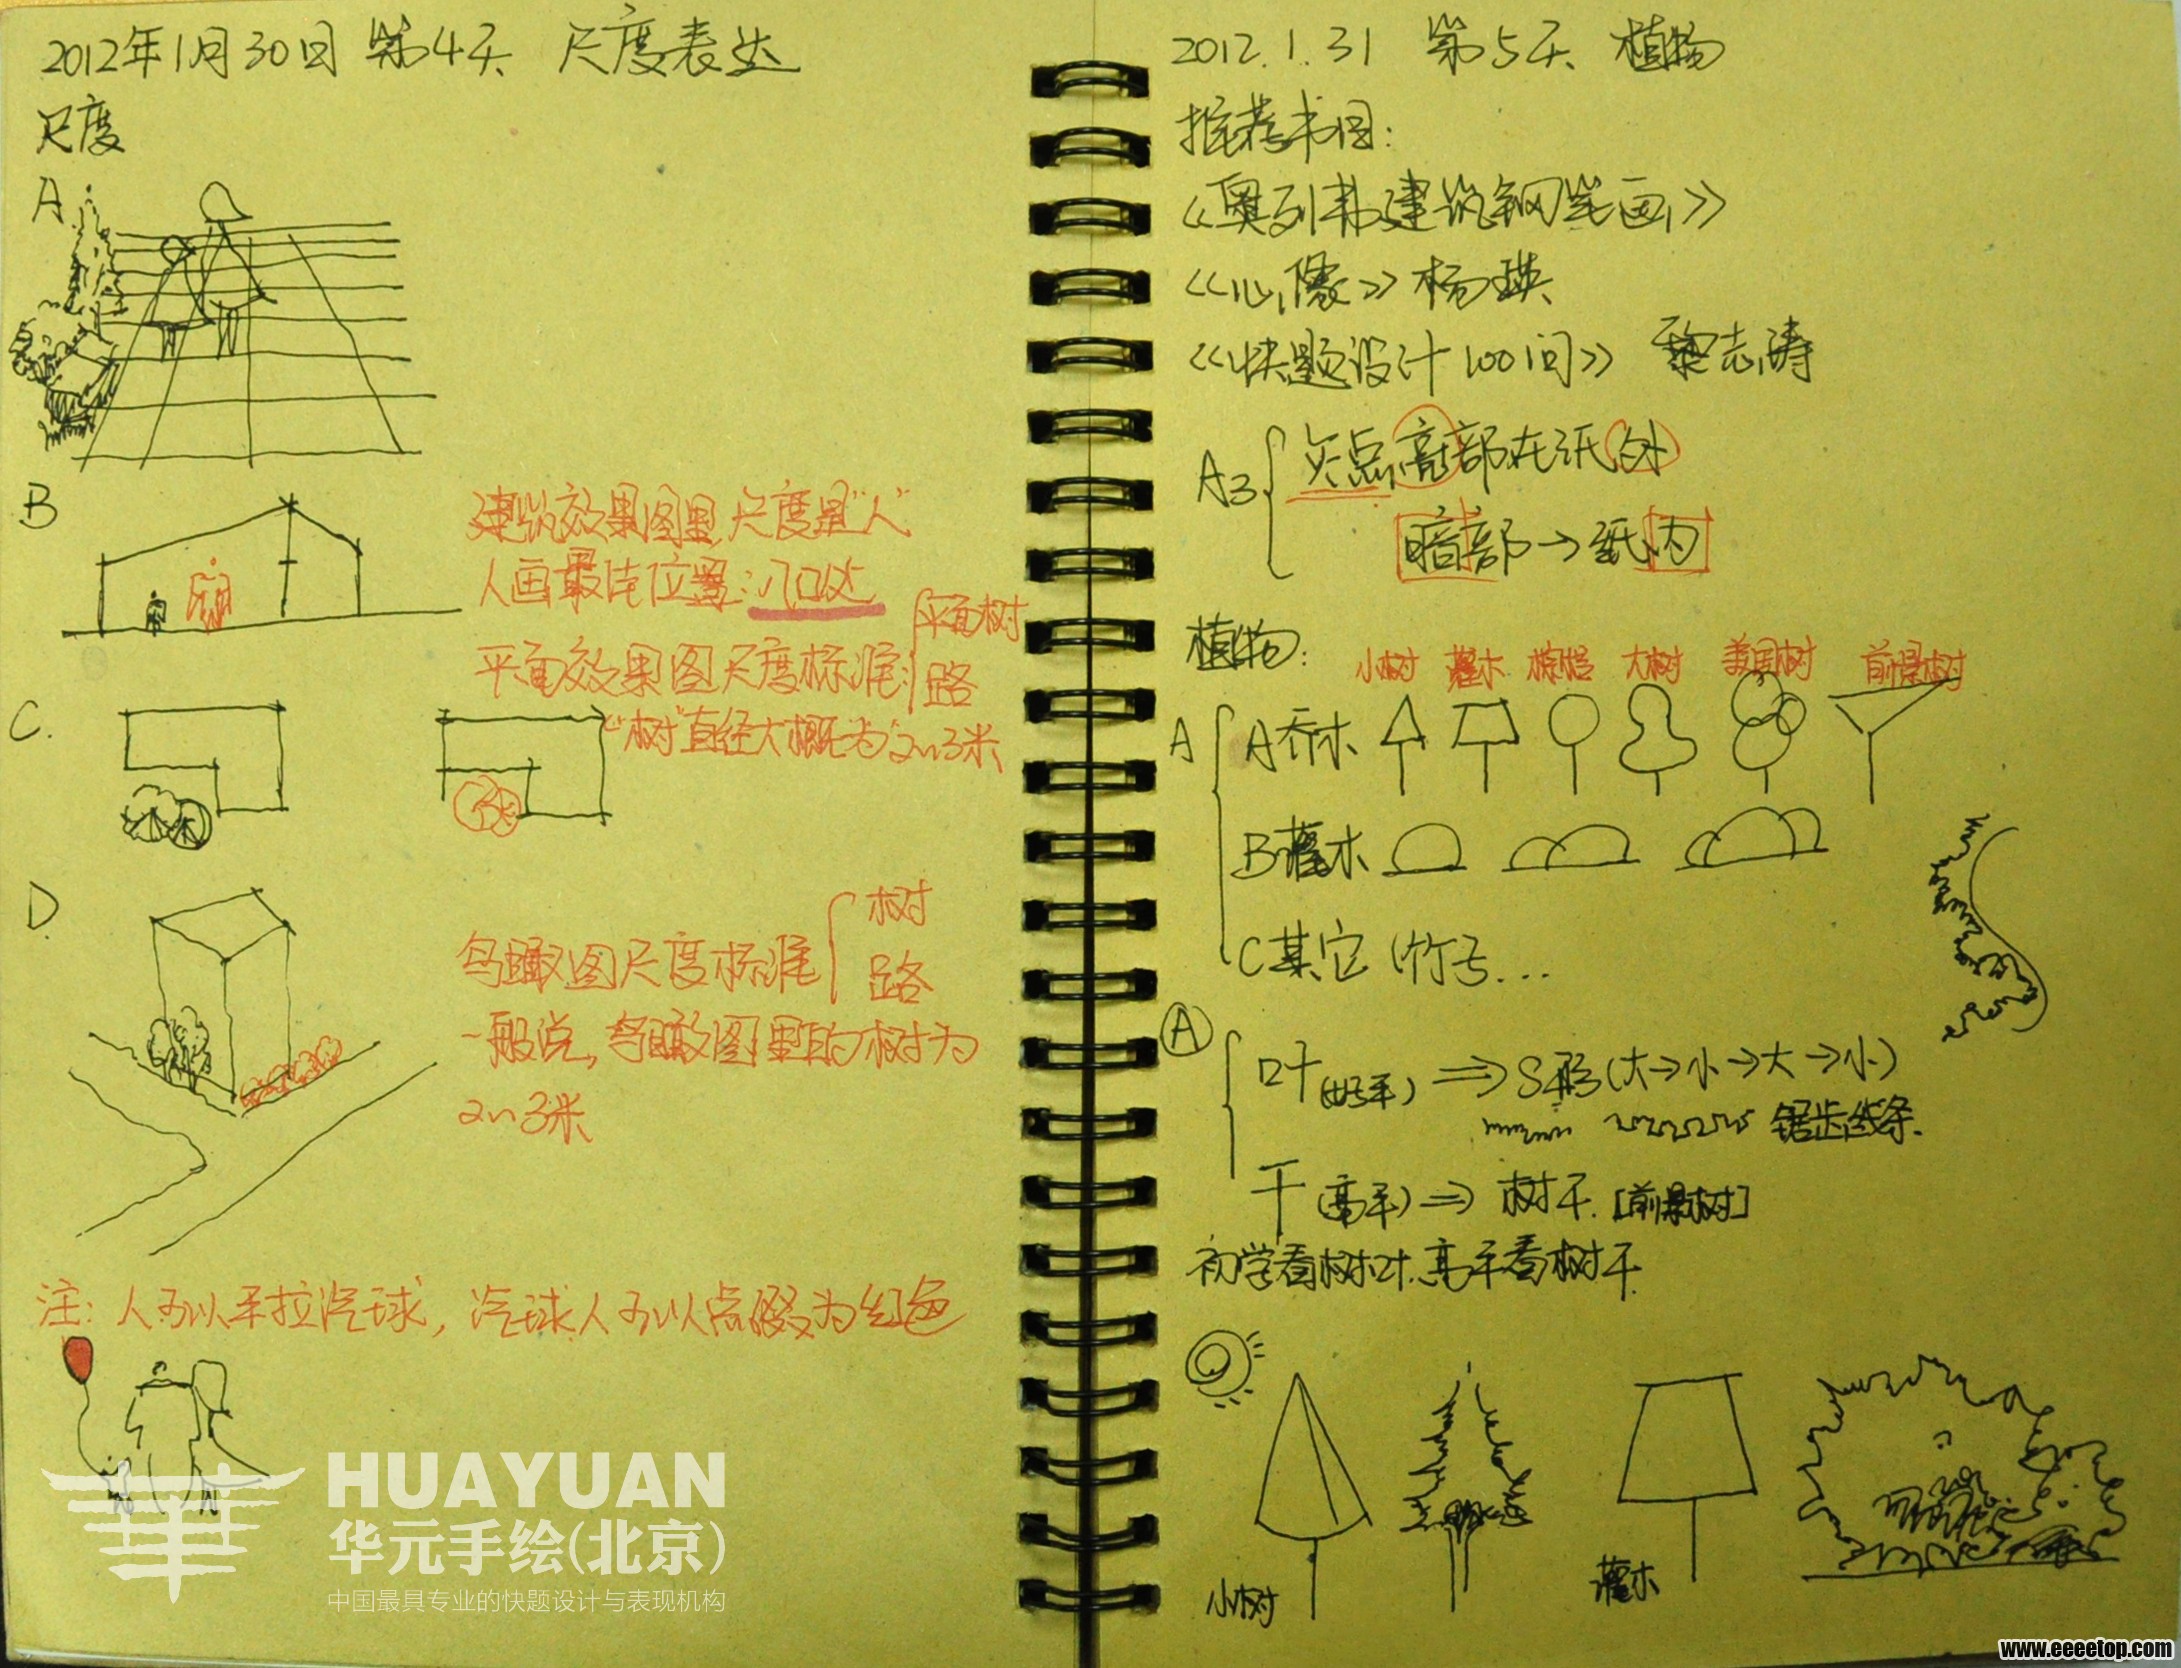 2012年1月30日 第4天 尺度表达
尺度
A
B
建筑效果图里尺度是"人"
人画最佳位置:入口处
平面效果图尺度标准
平面树
路
"树"直径大概为2~3米
C.
D.
鸟瞰图尺度标准
树
路
一般说,鸟瞰图里的树为
2~3米
注:人可以手拉汽球,汽球人可以点缀为红色
HUAYUAN
华元手绘(北京)
中国最具专业的快题设计与表现机构
2012.1.31 第5天 植物
推荐书目:
《奥列弗建筑钢笔画》
《心像》杨瑛
《快题设计100问》 黎志涛
A3
灭点 亮部在纸外
暗部→纸内
植物:
小树 灌木 棕榈 大树 美国树 前景树
A
A乔木
B灌木
C其它 竹子...
A
叶(新手) ⇒ S形(大→小→大→小)
锯齿线条.
干(高手) ⇒ 树干.[前景树]
初学看树叶.高手看树干.
小树
灌木
www.eeeetop.com